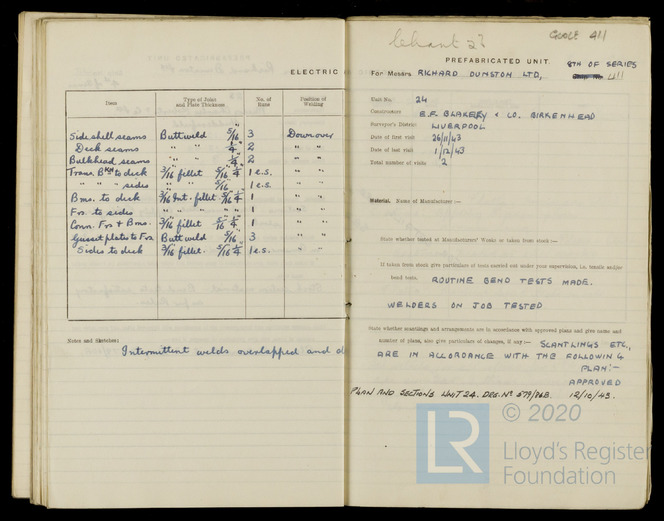 ELECTRIC
Item
Type of Joint and Plate Thickness
No. of Runs
Position of Welding
Side shell seams Butt weld 5/16" 3 Downover
Deck seams " " 1/4" 2 " "
Bulkhead seams " " 1/4" 2 " "
Trans. Bkh to deck 3/16 fillet 5/16 1/4" 1 e.s. " "
" " " sides " " 5/16" 1 e.s. " "
Bms. to deck 3/16 Int. fillet 5/16 1/4" 1 " "
Frs. to sides " " " " 1 " "
Conn. Frs & Bms. 3/16 fillet 5/16 1/4" 1 " "
Gusset plates to Frs Butt weld 5/16" 3 " "
Sides to deck 3/16" fillet 5/16 1/4" 1 e.s. " "
Notes and Sketches:
Intermittent welds overlapped and
411
PREFABRICATED UNIT.
8TH OF SERIES
For Messrs. RICHARD DUNSTON LTD, 411
Unit No. 24
Constructors E.F. BLAKELEY & CO. BIRKENHEAD
Surveyor's District LIVERPOOL
Date of first visit 26/11/43
Date of last visit 1/12/43
Total number of visits 2
Material. Name of Manufacturer :—
State whether tested at Manufacturers' Works or taken from stock :—
If taken from stock give particulars of tests carried out under your supervision, i.e. tensile and/or
bend tests. ROUTINE BEND TESTS MADE.
WELDERS ON JOB TESTED
State whether scantlings and arrangements are in accordance with approved plans and give name and
number of plans, also give particulars of changes, if any :— SCANTLINGS ETC.,
ARE IN ACCORDANCE WITH THE FOLLOWING
PLAN:—
APPROVED
PLAN AND SECTIONS UNIT 24. DRG. No 579/86B. 12/10/43.
© 2020
LR
Lloyd's Register
Foundation